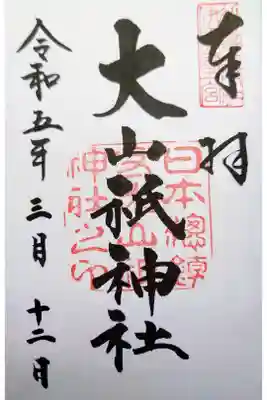 奉拝
大山祇神社
日本總鎮
神社之印
令和五年 三月 十二日